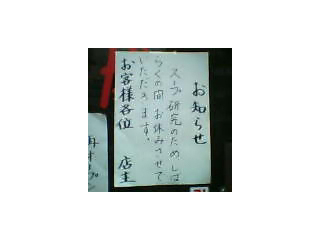 お知らせ
スープ研究のためしば
らくの間お休みさせて
いただきます。
お客様各位 店主